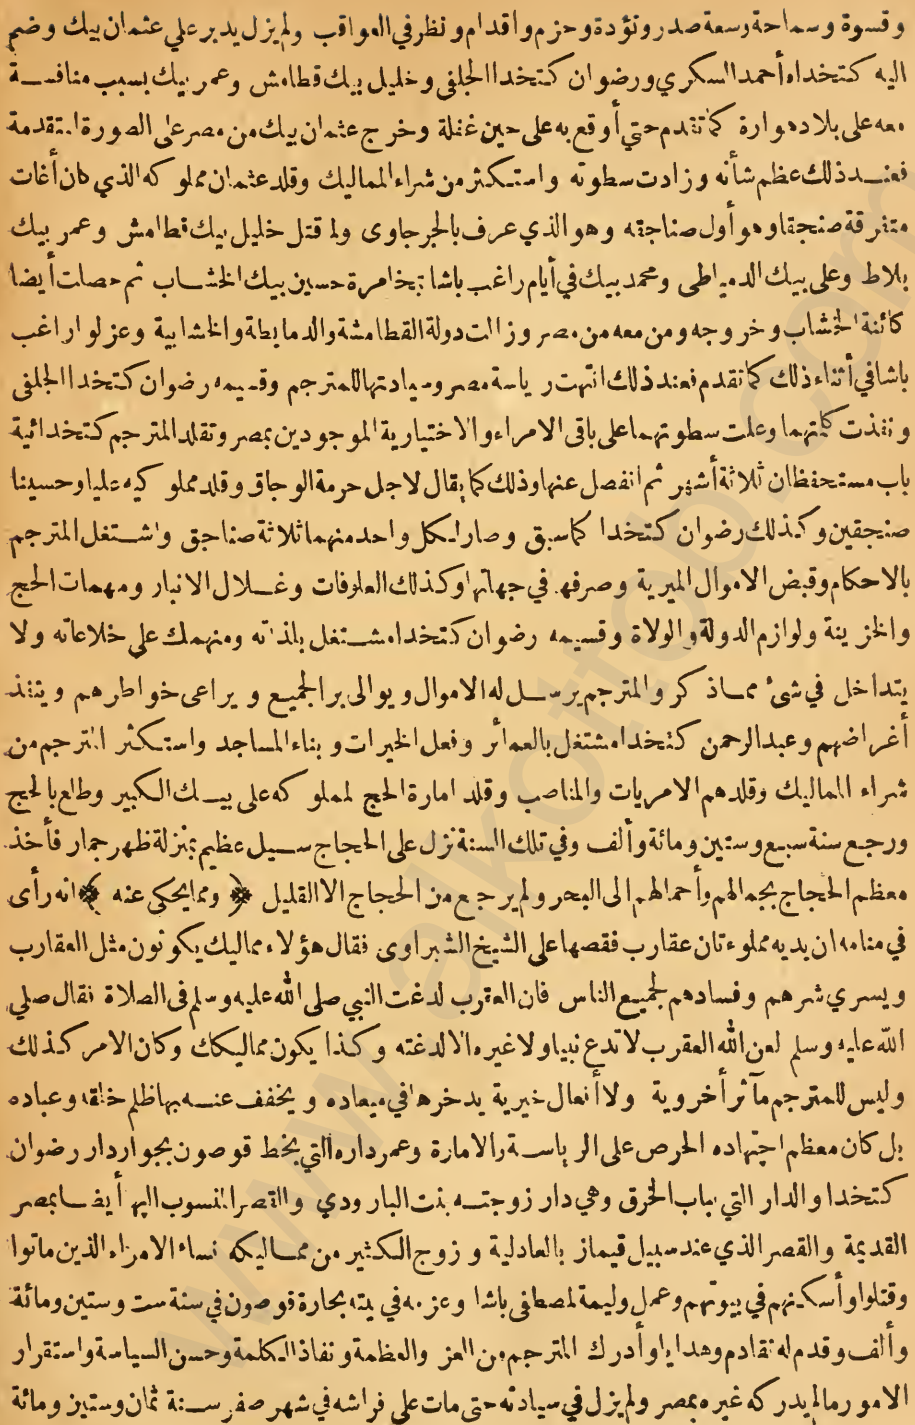 وقسوة وسماحة وسعة صدر وتؤدة وحزم واقدام ونظر في العواقب ولم يزل يدبر علي عثمان بيك وضم
اليه كتخداه أحمد السكري ورضوان كتخدا الجلفي وخليل بيك قطامش وعمر بيك بسبب منافسة
معه على بلاد هوارة كما تقدم حتي أوقع به على حين غفلة وخرج عثمان بيك من مصر على الصورة المتقدمة
فعند ذلك عظم شأنه وزادت سطوته واستكثر من شراء المماليك وقلد عثمان مملوكه الذي كان أغات
متفرقة صنجقا وهو أول صناجقه وهو الذي عرف بالجرجاوى ولما قتل خليل بيك قطامش وعمر بيك
بلاط وعلى بيك الدمياطى ومحمد بيك في أيام راغب باشا بمخامرة حسين بيك الخشاب ثم حصلت أيضا
كائنة الخشاب وخروجه ومن معه من مصر وزالت دولة القطامشة والدمايطة والخشابية وعزلوا راغب
باشا في أثناء ذلك كما تقدم فعند ذلك انتهت رياسة مصر وسيادتها للمترجم وقسيمه رضوان كتخدا الجلفى
ونفذت كلمتهما وعلت سطوتهما على باقى الامراء والاختيارية الموجودين بمصر وتقلد المترجم كتخدائية
باب مستحفظان ثلاثة أشهر ثم انفصل عنها وذلك كما يقال لاجل حرمة الوجاق وقلد مملوكيه عليا وحسينا
صنجقين وكذلك رضوان كتخدا كما سبق وصار لكل واحد منهما ثلاثة صناجق واشتغل المترجم
بالاحكام وقبض الاموال الميرية وصرفها في جهاتها وكذلك العلوفات وغلال الانبار ومهمات الحج
والخزينة ولوازم الدولة والولاة وقسيمه رضوان كتخدا مشتغل بلذاته ومنهمك علي خلاعاته ولا
يتداخل في شئ مما ذكر والمترجم يرسل له الاموال ويوالى بر الجميع ويراعى خواطرهم وينفذ
أغراضهم وعبد الرحمن كتخدا مشتغل بالعمائر وفعل الخيرات وبناء المساجد واستكثر المترجم من
شراء المماليك وقلدهم الامريات والمناصب وقلد امارة الحج لمملوكه على بيك الكبير وطلع بالحج
ورجع سنة سبع وستين ومائة وألف وفي تلك السنة نزل على الحجاج سيل عظيم بمنزلة ظهر حمار فأخذ
معظم الحجاج بجمالهم وأحمالهم الى البحر ولم يرجع من الحجاج الا القليل ﴿ ومما يحكى عنه ﴾ انه رأى
في منامه ان يديه مملوءتان عقارب فقصها على الشيخ الشبراوى فقال هؤلاء مماليك يكونون مثل العقارب
ويسري شرهم وفسادهم لجميع الناس فان العقرب لدغت النبي صلى الله عليه وسلم فى الصلاة فقال صلي
الله عليه وسلم لعن الله العقرب لا تدع نبيا ولا غيره الا لدغته وكذا يكون مماليكك وكان الامر كذلك
وليس للمترجم مآثر أخروية ولا أفعال خيرية يدخرها في ميعاده ويخفف عنه بها ظلم خلقه وعباده
بل كان معظم اجتهاده الحرص على الرياسة والامارة وعمر داره التي بخط قوصون بجوار دار رضوان
كتخدا والدار التي بباب الخرق وهي دار زوجته بنت البارودي والقصر المنسوب اليها أيضا بمصر
القديمة والقصر الذي عند سبيل قيماز بالعادلية وزوج الكثير من مماليكه نساء الامراء الذين ماتوا
وقتلوا وأسكنهم في بيوتهم وعمل وليمة لمصطفى باشا وعزمه في بيته بحارة قوصون في سنة ست وستين ومائة
وألف وقدم له تقادم وهدايا وأدرك المترجم من العز والعظمة ونفاذ الكلمة وحسن السياسة واستقرار
الامور ما لم يدركه غيره بمصر ولم يزل في سيادته حتى مات على فراشه في شهر صفر سنة ثمان وستين ومائة
www.alkottob.com